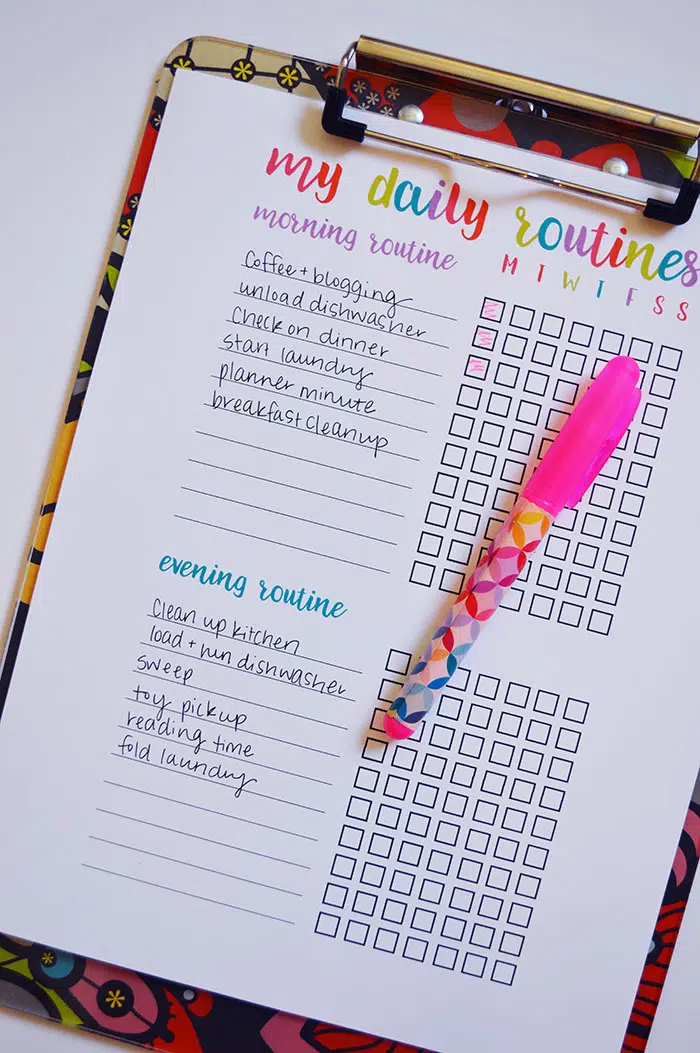 my daily routines
morning routine
M T W T F S S
Coffee + blogging
unload dishwasher
Check on dinner
start laundry
planner minute
breakfast cleanup
evening routine
Clean up kitchen
load + run dishwasher
sweep
toy pickup
reading time
fold laundry